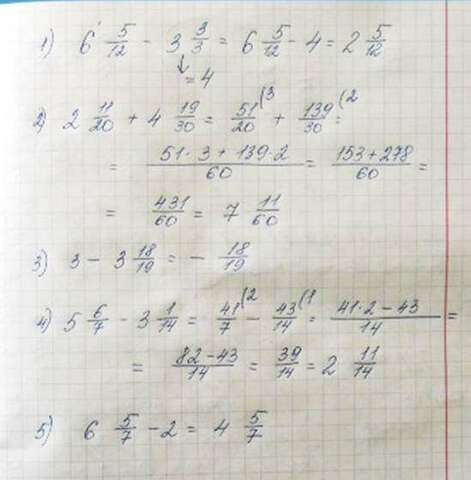 1) 6 5/12 - 3 3/3 = 6 5/12 - 4 = 2 5/12
= 4
2) 2 11/20 + 4 19/30 = 51/20 (3 + 139/30 (2 =
= 51·3 + 139·2/60 = 153 + 278/60 =
= 431/60 = 7 11/60
3) 3 - 3 18/19 = - 18/19
4) 5 6/7 - 3 1/14 = 41/7 (2 - 43/14 (1 = 41·2 - 43/14 =
= 82 - 43/14 = 39/14 = 2 11/14
5) 6 5/7 - 2 = 4 5/7